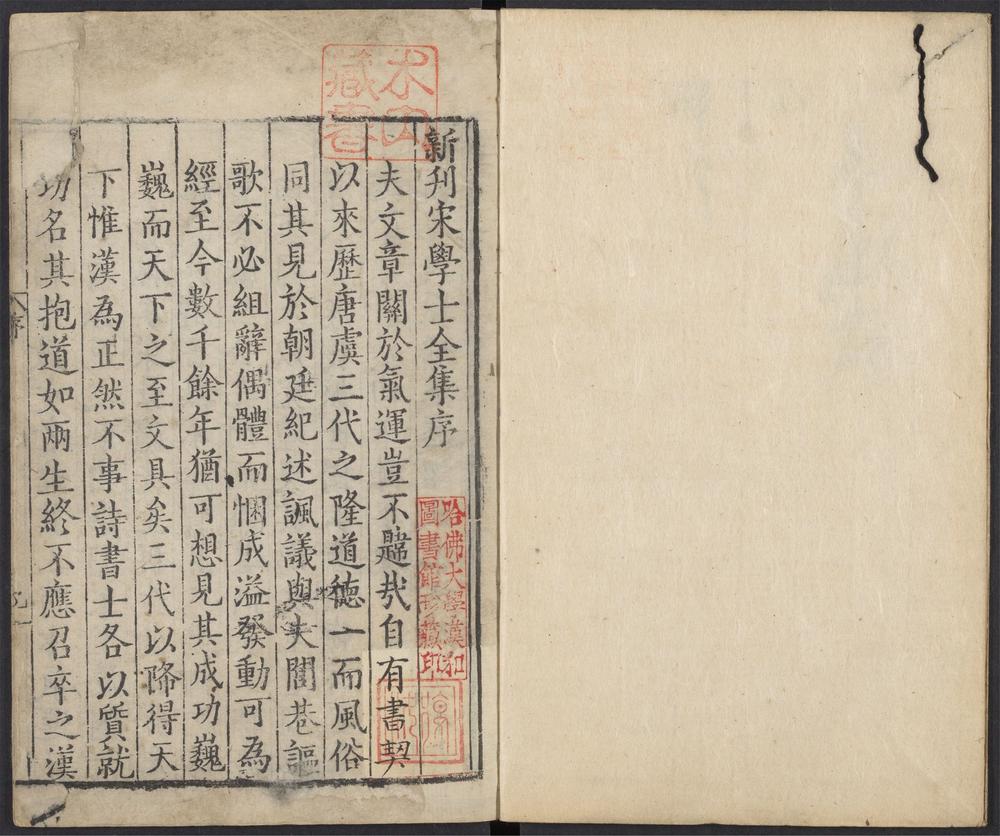 新刋宋學士全集序
夫文章關於氣運豈不韙㢤自有書契
以來歷唐虞三代之隆道德一而風俗
同其見於朝廷紀述諷議與夫閭巷謳
歌不必組辭偶體而悃成溢發動可為
經至今數千餘年猶可想見其成功巍
巍而天下之至文具矣三代以降得天
下惟漢為正然不事詩書士各以質就
功名其抱道如兩生終不應召卒之漢
序
藏書
哈佛大學漢和
圖書館珍藏印